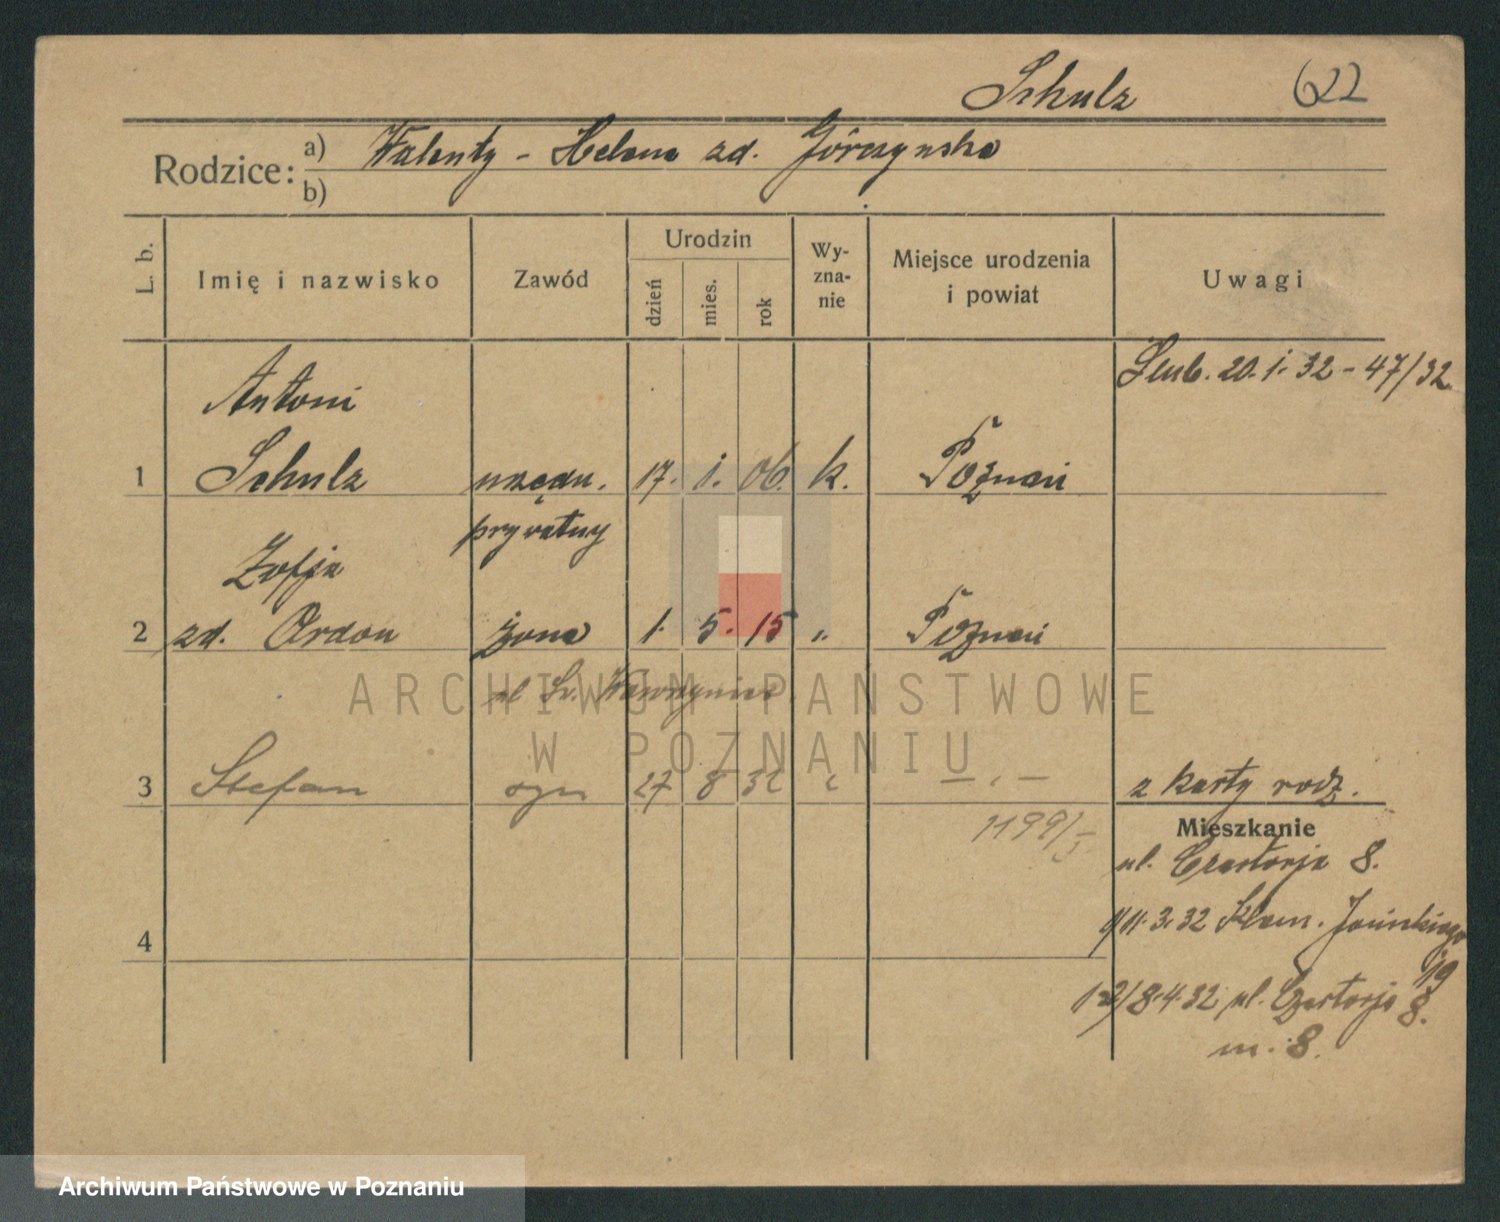 Schulz 622
Rodzice: a) Walenty - Helena zd. Górczyńska
b)
L. b. Imię i nazwisko Zawód Urodzin dzień mies. rok Wyznanie Miejsce urodzenia i powiat Uwagi
Ślub. 20.1.32 - 47/32
Antoni
1 Schulz urzędn. 17. 1. 06. k. Poznań
prywatny
Zofja
2 zd. Ordon żona 1. 5. 15 „ Poznań
ul Św. Wawrzyńca
3 Stefan syn 27 8 32 „ — „ — z karty rodz.
1199/
Mieszkanie
ul. Czartorja 8.
4
11.3.32 Klem. Janickiego
19
1-2/8.4.32 ul. Czartorja 8.
m. 8.
ARCHIWUM PAŃSTWOWE
W POZNANIU
Archiwum Państwowe w Poznaniu